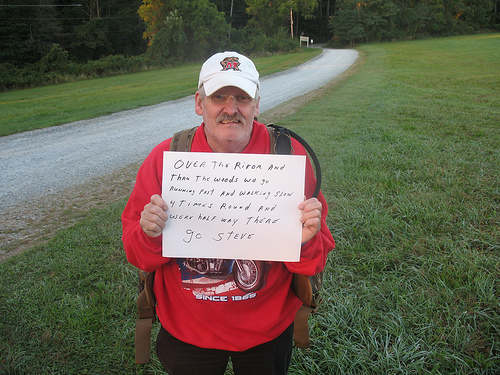 OVER The RivOR And
ThRu The woods we go
Running Fast And WALKing SLow
4 Times Round And
weAr half wAy There
go STEVE
SINCE 1869